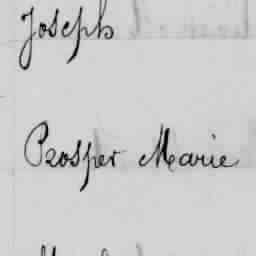 Joseph
Prosper Marie